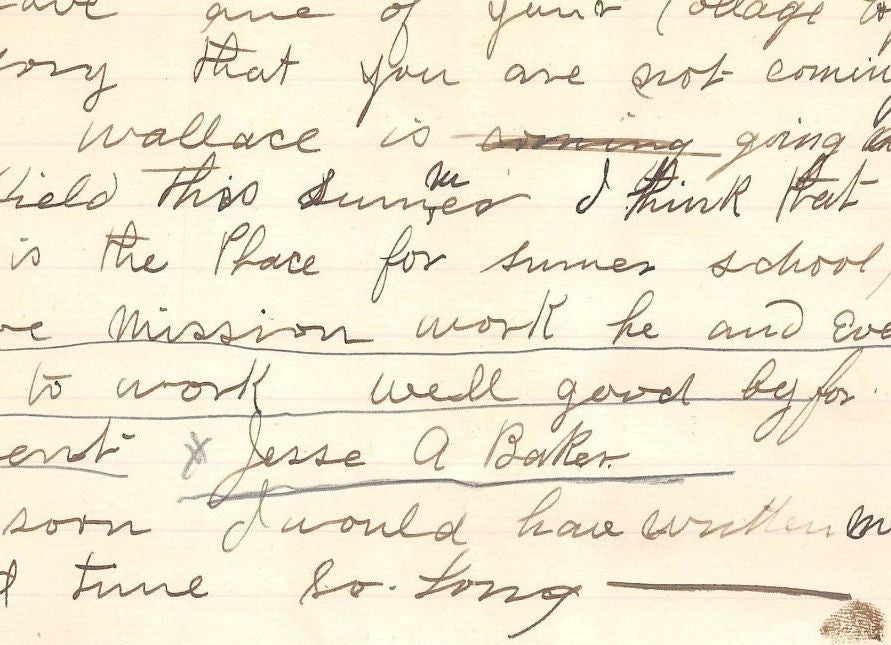 one of your Collage
that you are not
Wallace is coming going
this summer I think that
is the Place for sumer school,
Mission work he and
to work well good by for
Jesse A Baker.
soon I would have written
time So-Long